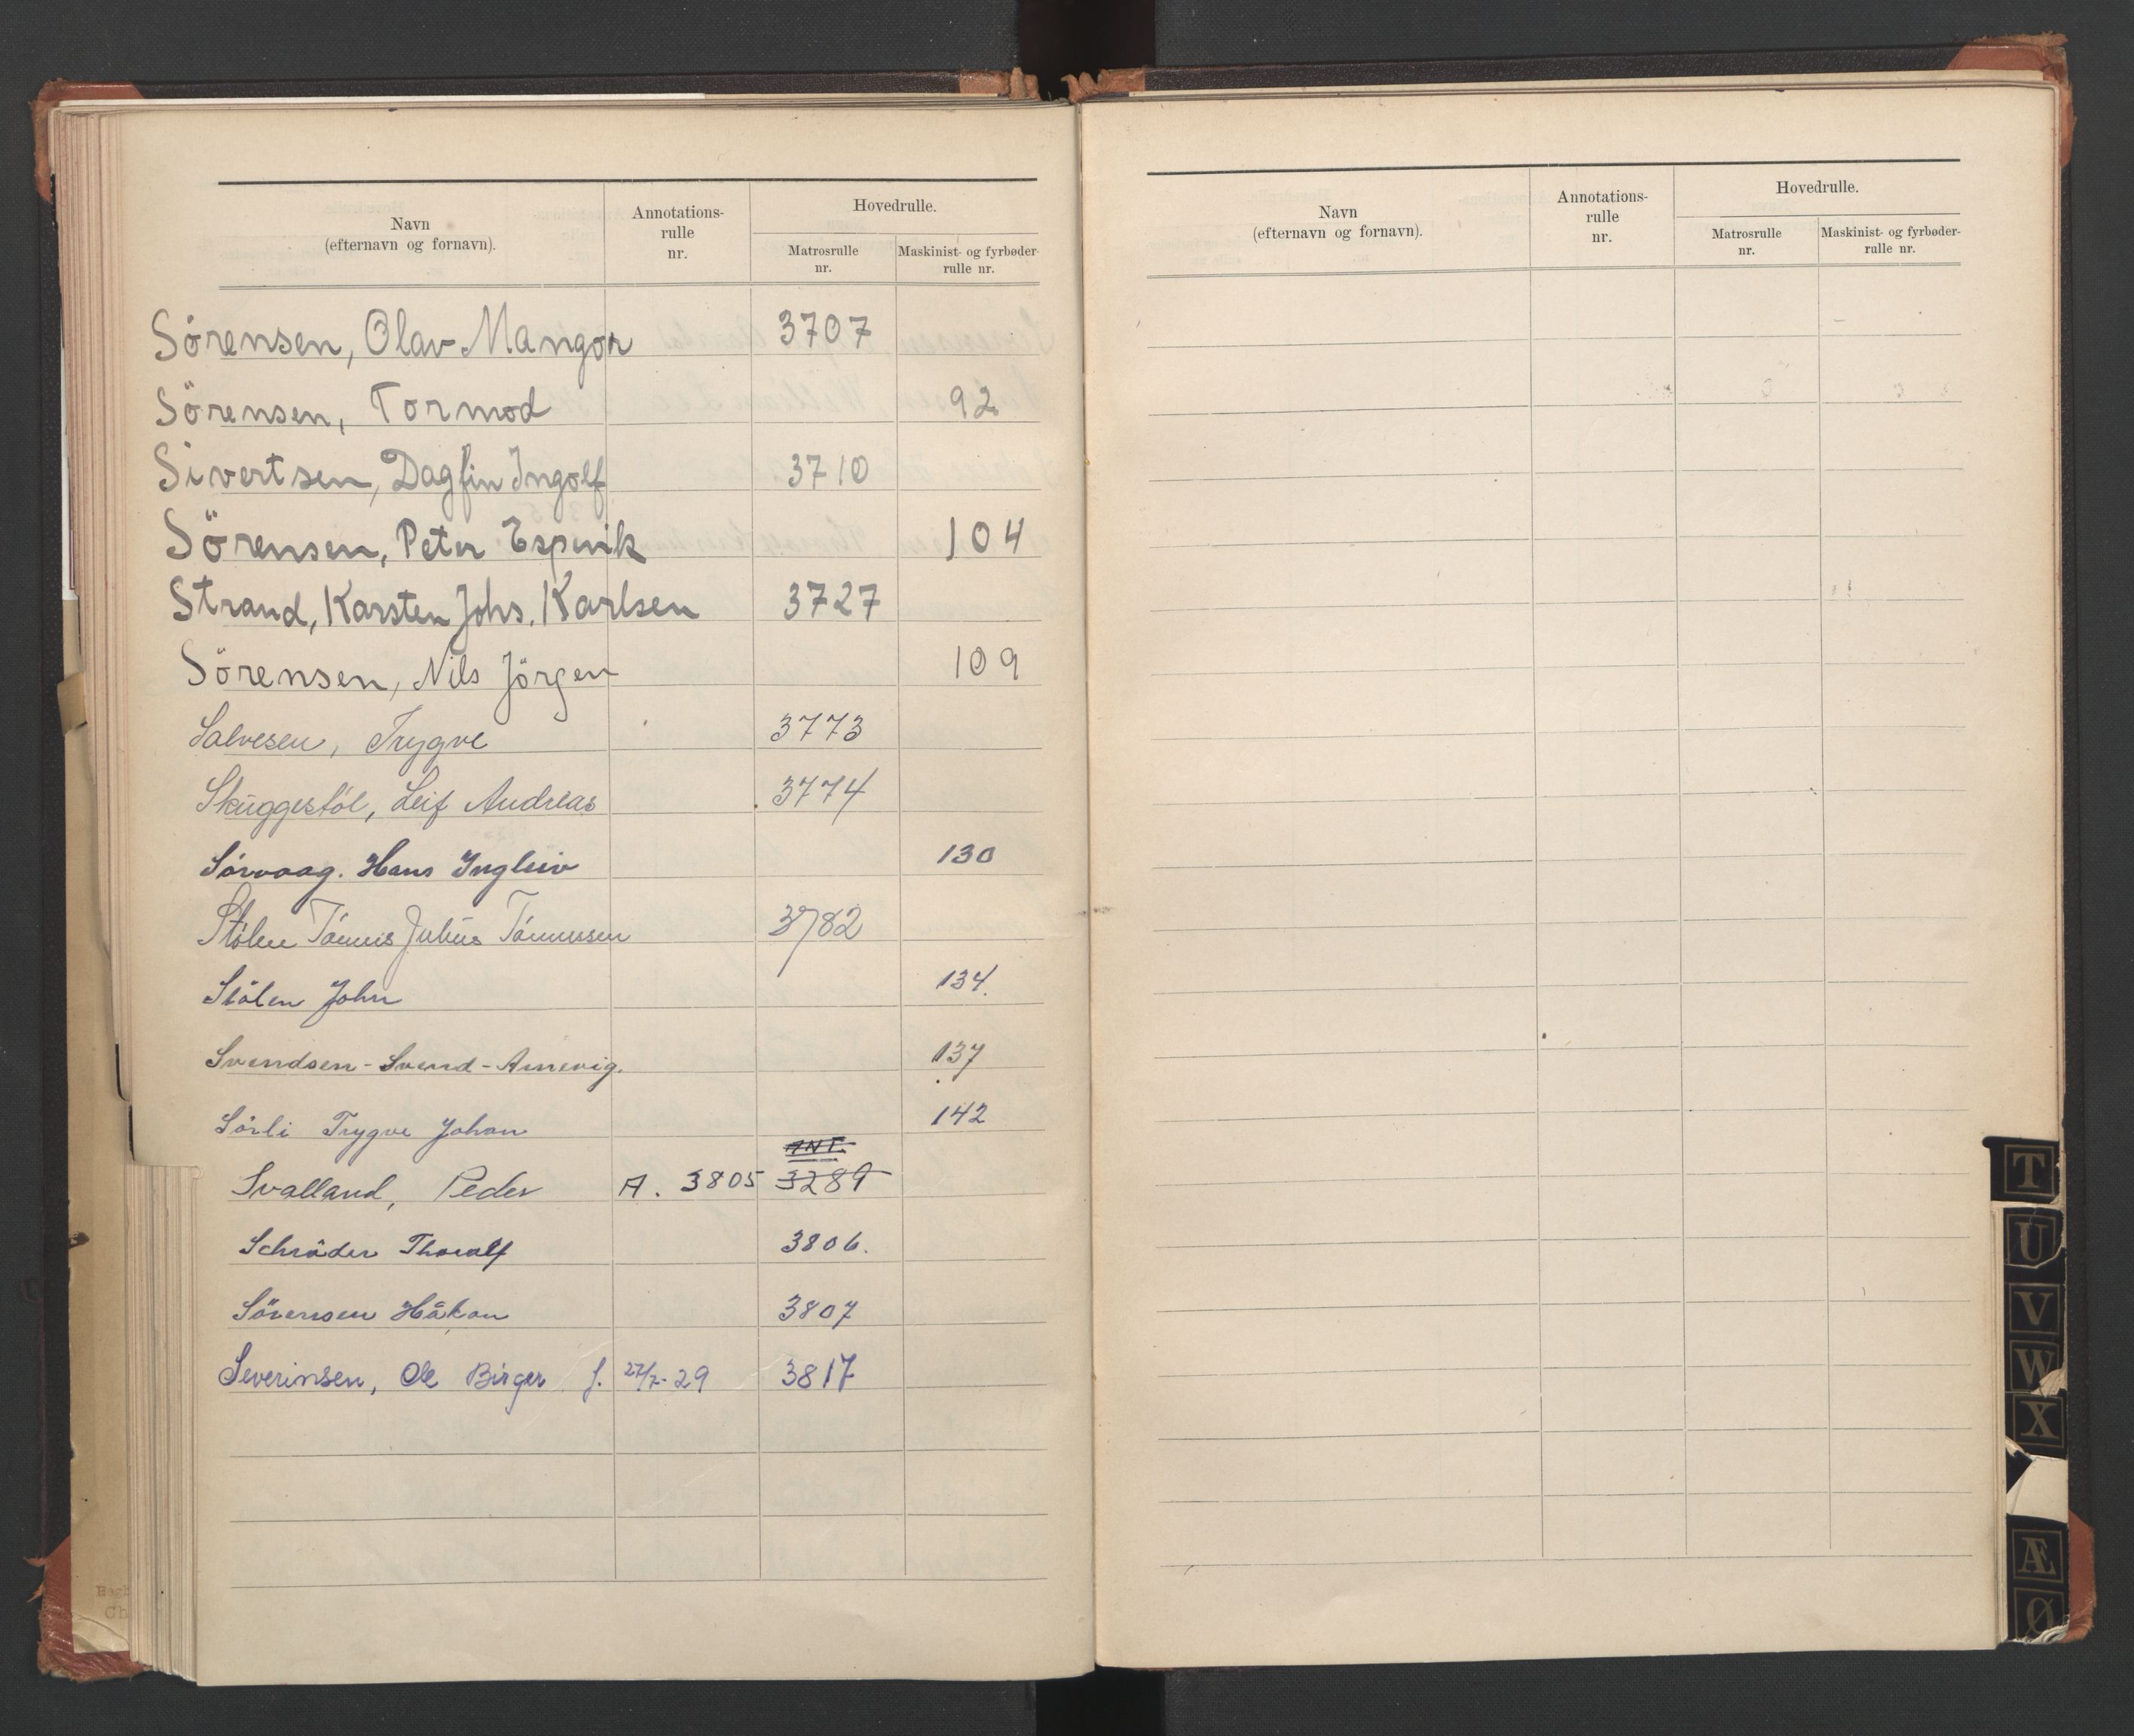 Navn
(efternavn og fornavn).
Annotations-
rulle
nr.
Hovedrulle.
Matrosrulle
nr.
Maskinist- og fyrbøder-
rulle nr.
Sörensen, Olav Mangor 3707
Sörensen, Tormod 92
Sivertsen, Dagfin Ingolf 3710
Sörensen, Peter Espevik 104
Strand, Karsten Johs. Karlsen 3727
Sörensen, Nils Jörgen 109
Salvesen, Trygve 3773
Skuggestöl, Leif Andreas 3774
Sórvaag. Hans Ingleiv 130
Stólen Tónnis Julius Tónnessen 3782
Stölen John 134.
Svendsen - Svend - Arnevig. 137
Sörli Trygve Johan 142
ANT.
Svalland, Peder A. 3805 3289
Schröder Thoralf 3806.
Sörensen Håkon 3807
Severinsen, Ole Birger f. 27/7-29 3817
Navn
(efternavn og fornavn).
Annotations-
rulle
nr.
Hovedrulle.
Matrosrulle
nr.
Maskinist- og fyrbøder-
rulle nr.
T
U
V
W
X
Æ
Ø